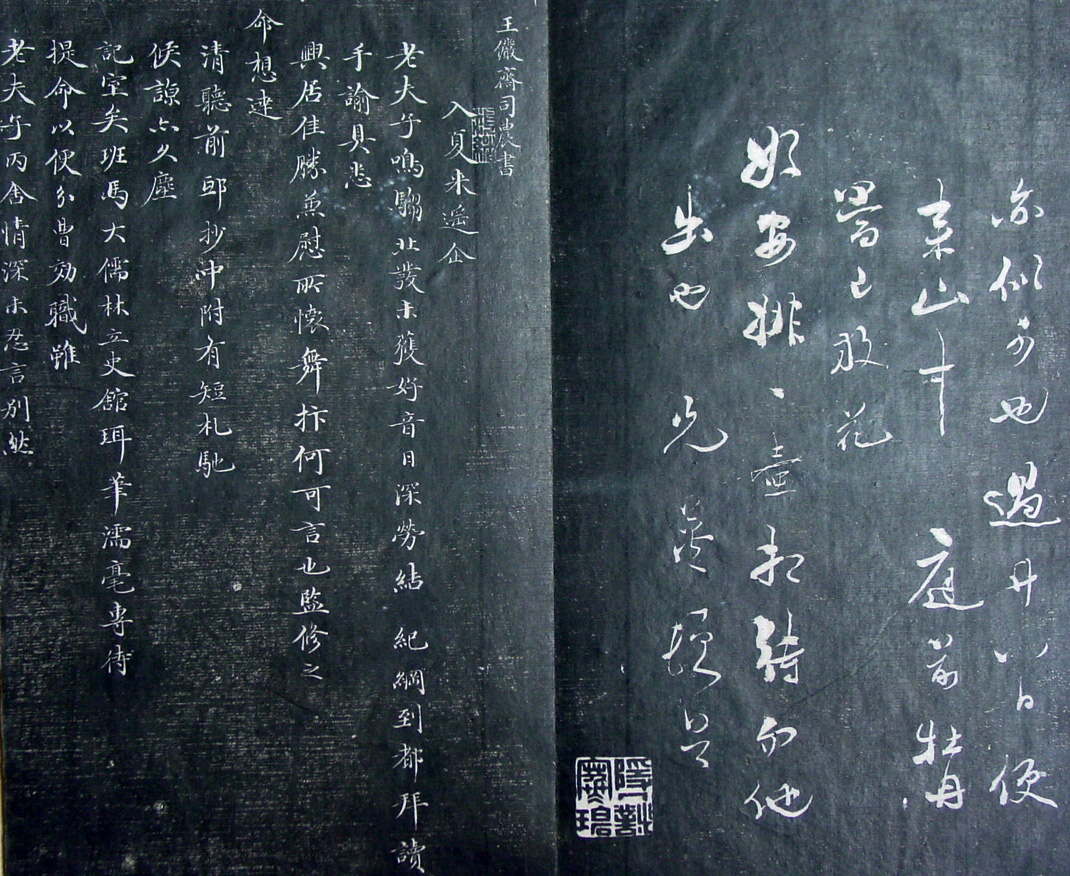 亦似可也過廿八日便
來山中 庭前牡丹
已放花
如安排一壺相待勿他
出也 光 頓首
王儼齋司農書
入夏來遙企
老夫子鳴騶北發未獲好音日深勞結 紀綱到都拜讀
手諭具悉
興居佳勝兼慰所懷舞抃何可言也監修之
命想達
清聽前郵抄中附有短札馳
候諒亦久塵
記室矣班馬大儒林立史館珥筆濡毫專待
提命以便分曹効職雖
老夫子丙舍情深未忍言別然